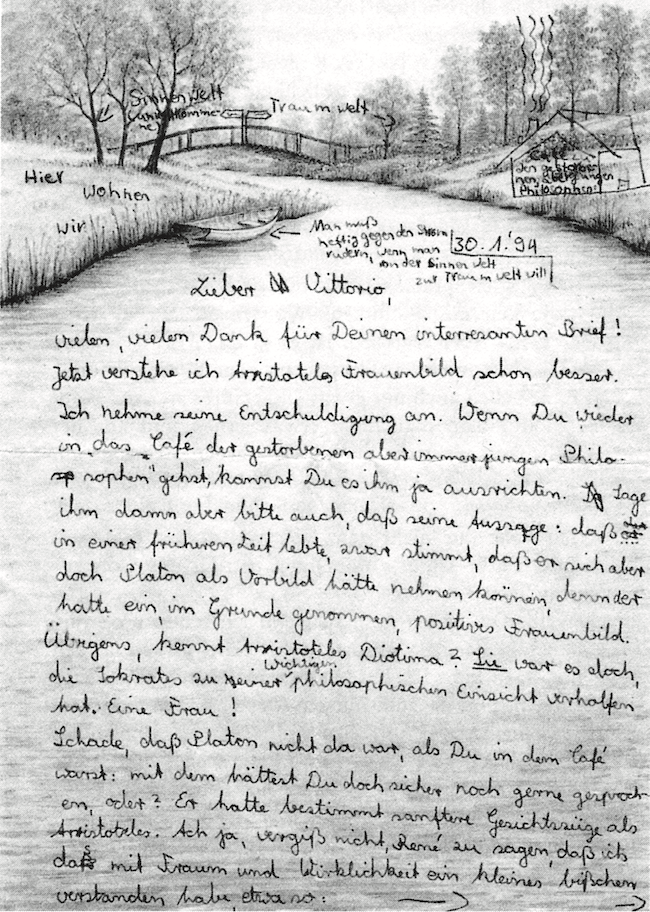 Sinnenwelt
(unvollkomme
ne)
Traumwelt
Hier
wohnen
wir
Café
der gestorbe
nen, aber jungen
Philosophen
Man muß
heftig gegen den Strom
rudern, wenn man
von der Sinnenwelt
zur Traumwelt will
30.1.'94
Lieber Vittorio,
vielen, vielen Dank für Deinen interresanten Brief!
Jetzt verstehe ich Arristoteles Frauenbild schon besser.
Ich nehme seine Entschuldigung an. Wenn Du wieder
in "das Café der gestorbenen aber immer jungen Philo-
sophen" gehst, kannst Du es ihm ja ausrichten. Sage
ihm dann aber bitte auch, daß seine Aussage: daß er
in einer früheren Zeit lebte, zwar stimmt, daß er sich aber
doch Platon als Vorbild hätte nehmen können, denn der
hatte ein, im Grunde genommen, positives Frauenbild.
Übrigens, kennt Arristoteles Diotima? Sie war es doch,
die Sokrates zu seiner wichtigen philosophischen Einsicht verholfen
hat. Eine Frau!
Schade, daß Platon nicht da war, als Du in dem Café
warst: mit dem hättest Du doch sicher noch gerne gesproch-
en, oder? Er hatte bestimmt sanftere Gesichtszüge als
Arristoteles. Ach ja, vergiß nicht, René zu sagen, daß ich
das mit Traum und Wirklichkeit ein kleines bißchen
verstanden habe, etwa so: